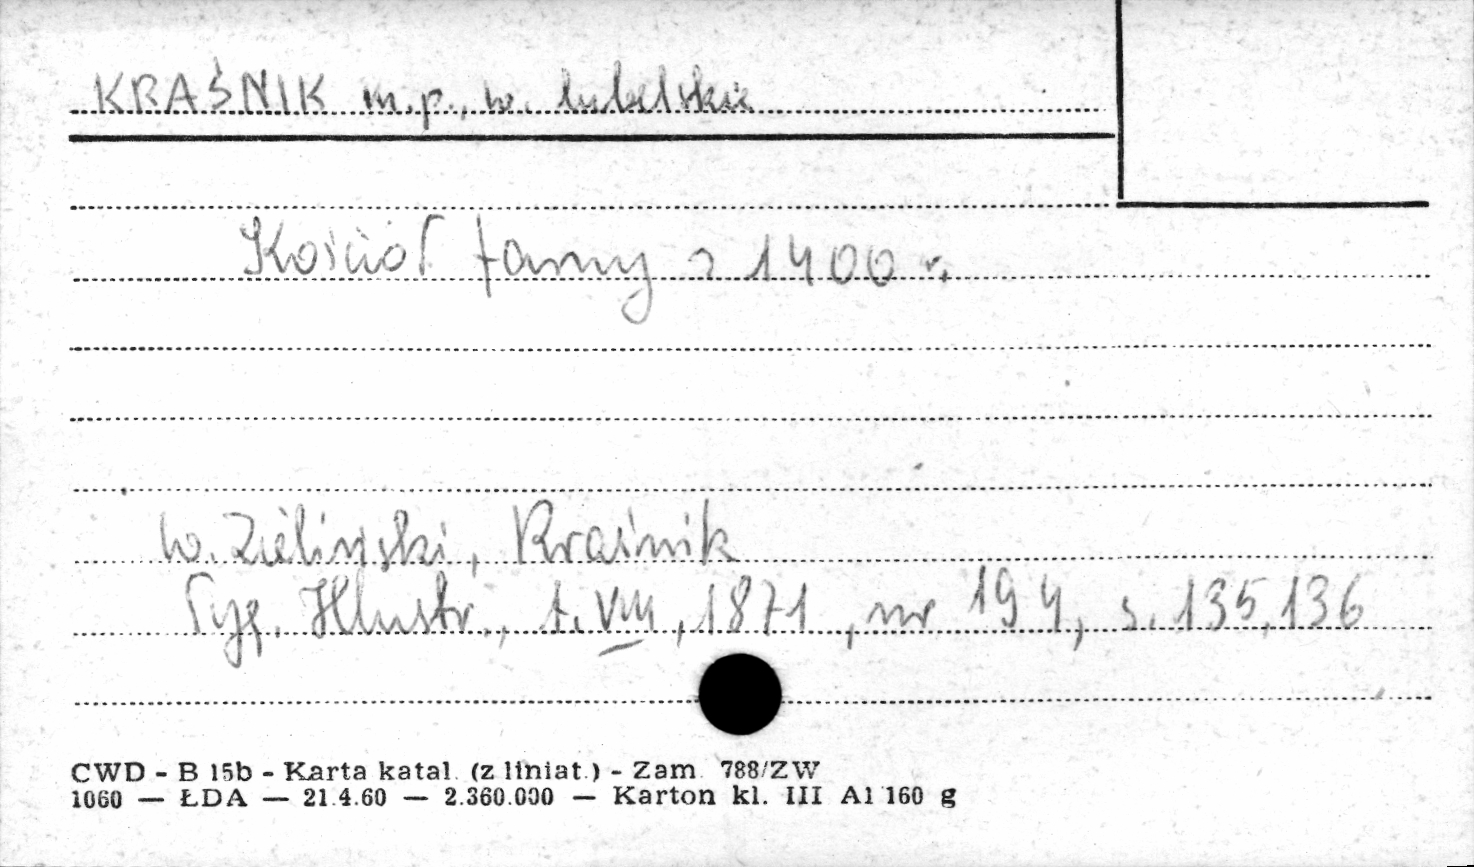 KRAŚNIK m.p., w. lubelskie
Kościół farny z 1400 r.
W. Zieliński, Kraśnik
Tyg. Illustr., t. VIII, 1871, nr 194, s. 135, 136
CWD - B 15b - Karta katal. (z liniat.) - Zam. 788/ZW
1060 — ŁDA — 21.4.60 — 2.360.000 — Karton kl. III A1 160 g